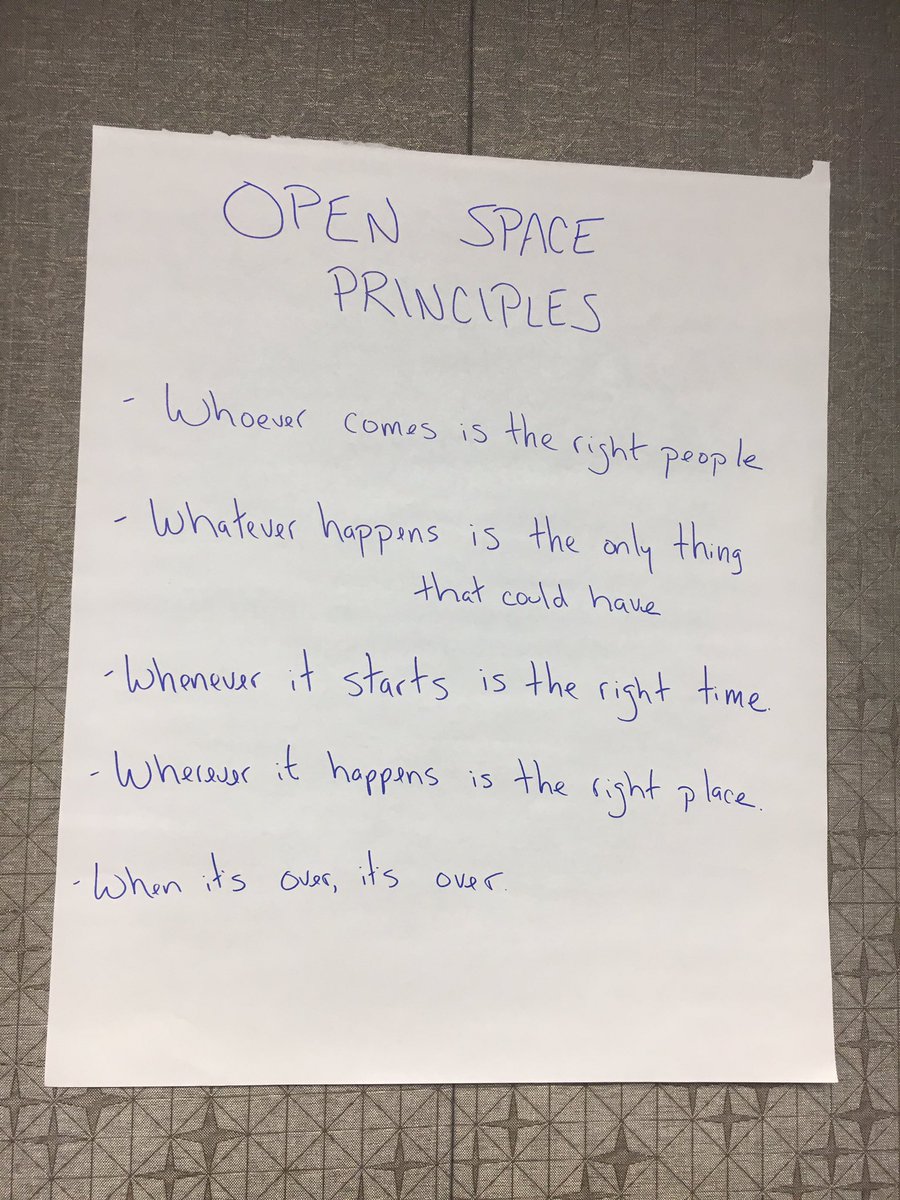 OPEN SPACE
PRINCIPLES
- Whoever comes is the right people
- Whatever happens is the only thing
that could have
- Whenever it starts is the right time.
- Wherever it happens is the right place.
- When it's over, it's over.